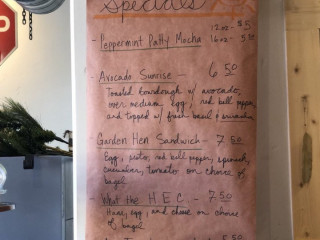 Specials
12oz - $5
- Peppermint Patty Mocha 16oz - 5.50
- Avocado Sunrise - 6 50
Toasted sourdough w/ avocado,
over medium egg, red bell pepper,
and topped w/ fresh basil & sriracha
Garden Hen Sandwich - 7 50
Egg, pesto, red bell pepper, spinach,
cucumber, tomato on choice of
bagel
- What the H E C - 7 50
Ham, egg, and cheese on choice
of bagel